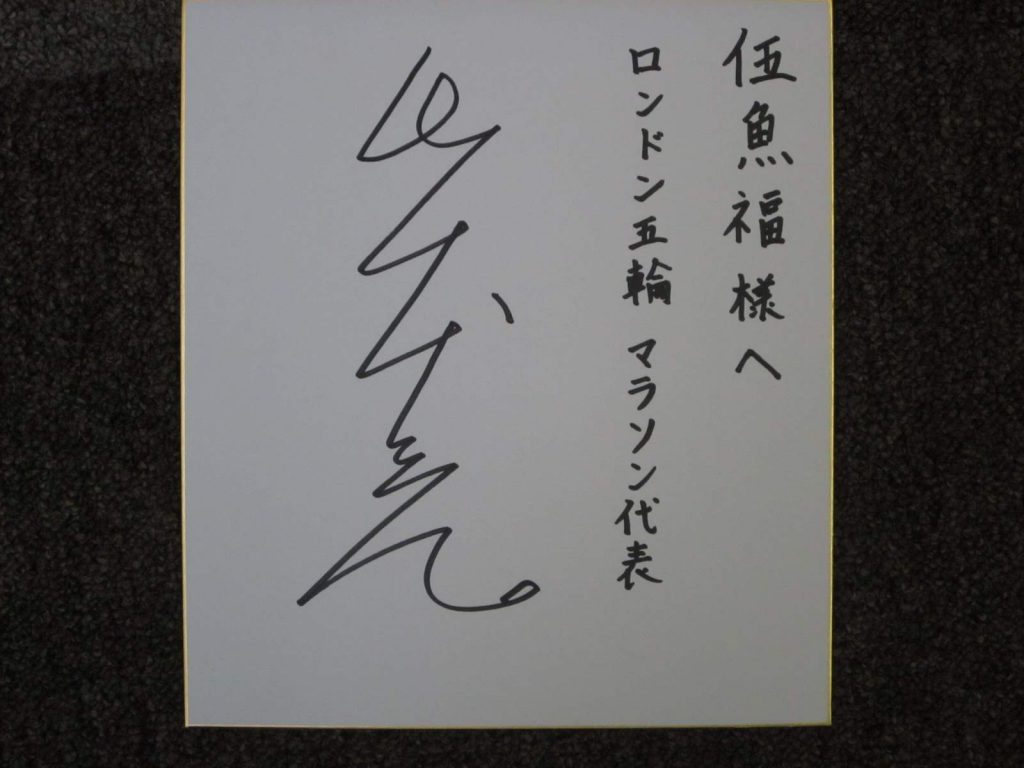 伍魚福様へ
ロンドン五輪 マラソン代表